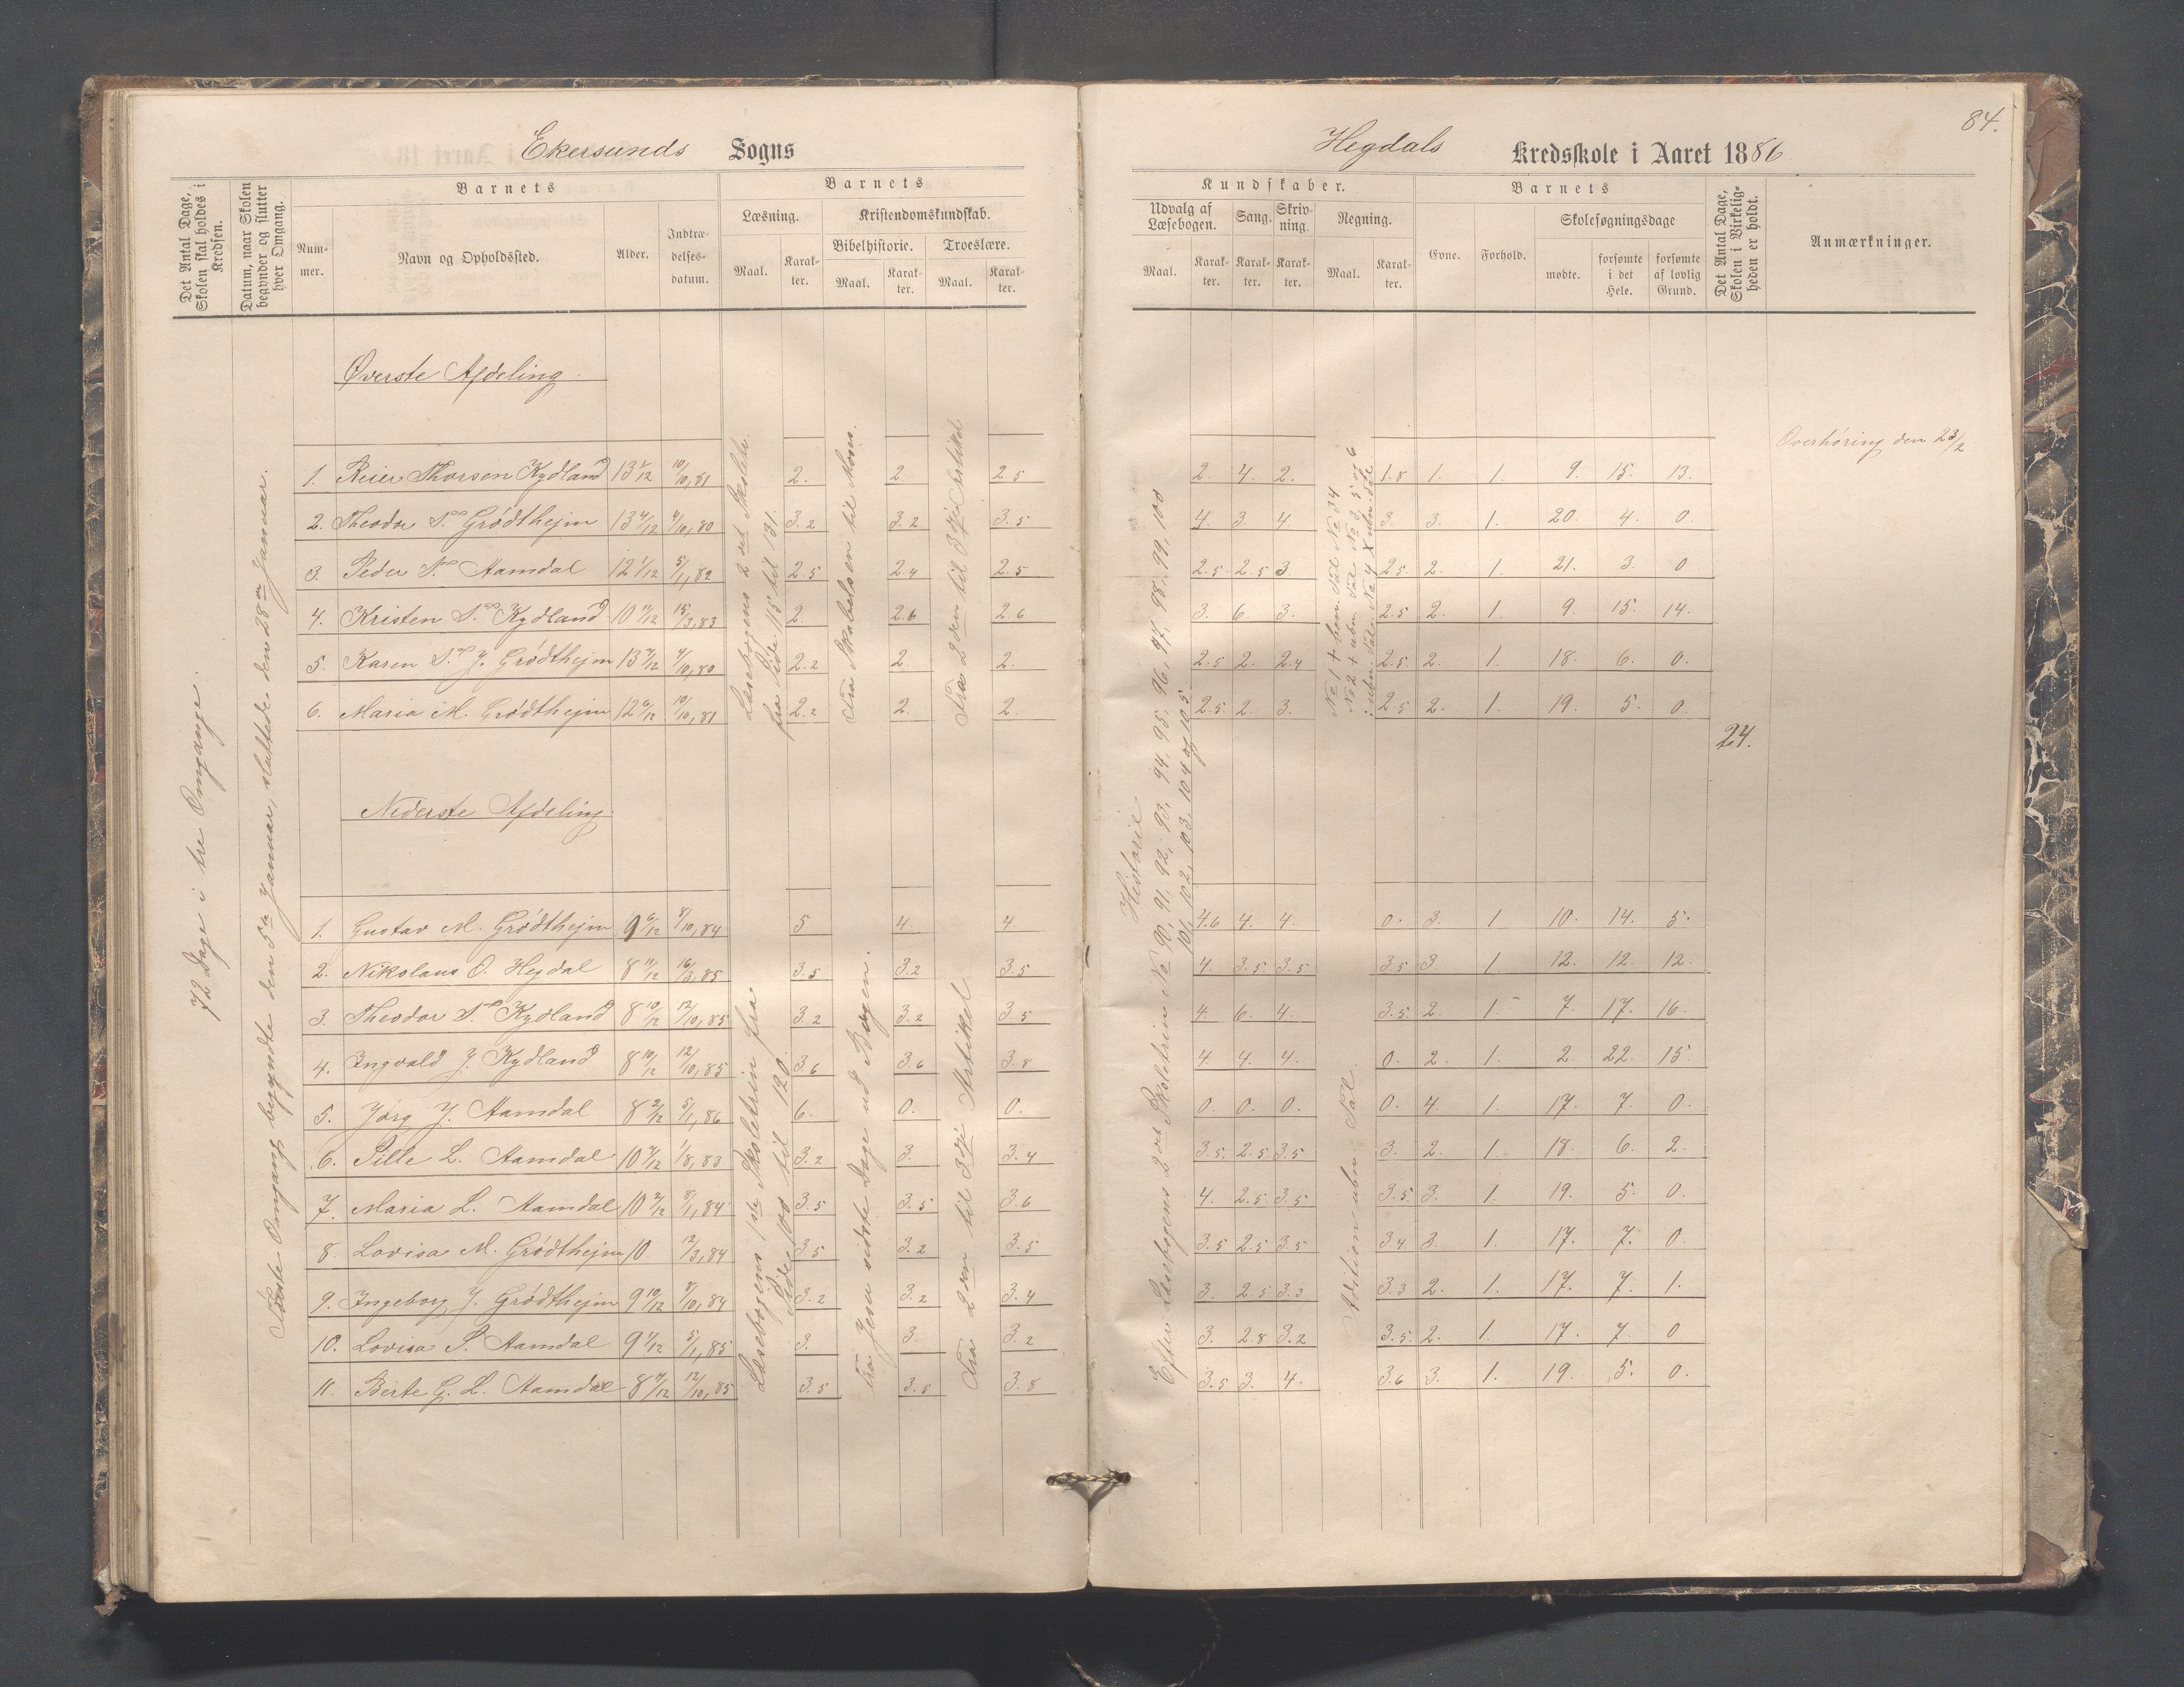 84.
Ekersunds Sogns
Hegdals Kredsskole i Aaret 1886
Det Antal Dage, Skolen skal holdes i Kredsen.
Datum, naar Skolen begynder og slutter hver Omgang.
Barnets
Nummer.
Navn og Opholdssted.
Alder.
Indtrædelsesdatum.
Barnets
Læsning.
Maal.
Karakter.
Kristendomskundskab.
Bibelhistorie.
Maal.
Karakter.
Troeslære.
Maal.
Karakter.
Kundskaber.
Udvalg af Læsebogen.
Maal.
Karakter.
Sang.
Karakter.
Skrivning.
Karakter.
Regning.
Maal.
Karakter.
Barnets
Evne.
Forhold.
Skolesøgningsdage
mødte.
forsømte i det Hele.
forsømte af lovlig Grund.
Det Antal Dage, Skolen i Virkeligheden er holdt.
Anmærkninger.
72 Dage i tre Omgange.
Første Omgang begyndte den 5te Januar, sluttede den 28de Januar.
Øverste Afdeling.
Læsebogens 2det Skoletr. fra Side 115 til 131.
Fra Skabelsen til Moses.
Fra 2den til 3die Artikel
Overhøring den 23/2
1. Reier Thorsen Kydland 13 2/12 10/10,81 2. 2 2.5 2. 4. 2. 1.8 1. 1. 9. 15. 13.
2. Theodor S. Grødthejm 13 4/12 4/10,80 3.2 3.2 3.5 4. 3. 4. 3. 3. 1. 20. 4. 0.
3. Peder N. Aamdal 12 1/12 5/1,82 2.5 2.4 2.5 2.5. 2.5 3. 2.5. 2. 1. 21. 3. 0
4. Kristen S. Kydland 10 11/12 15/3,83 2. 2.6 2.6 3. 6. 3. 2.5 2. 1. 9. 15. 14.
5. Karen S. J. Grødthejm 13 4/12 4/10,80 2.2 2. 2. 2.5 2. 2.4 2.5. 2. 1. 18. 6. 0.
6. Maria M. Grødthejm 12 6/12 10/10,81 2.2 2. 2. 2.5. 2. 3. 2.5 2. 1. 19. 5. 0.
24.
No 1 + ben. Tal No 34
No 2 + ubn. Tal No 3, 5 og 6
: ubn. Tal. No 4 X ubn. Tal
Nederste Afdeling.
Læsebogens 1ste Skoletrin fra Side 100 til 120.
Fra Jesu sidste Dage ud Bogen.
Fra 2den til 3die Artikel
Historie
Efter Læsebogens 2det Skoletrin No 90, 91, 92, 93, 94, 95, 96, 97, 98, 99, 100
101, 102, 103, 104 og 105.
Adition ubn. Tal.
1. Gustav M. Grødthejm 9 6/12 8/10,84 5 4. 4 4.6 4. 4. 0. 3. 1 10. 14. 5.
2. Nikolaus O. Hegdal 8 11/12 16/3,85 3.5 3.2 3.5 4. 3.5 3.5 3.5 3 1 12. 12. 12.
3. Theodor S. Kydland 8 10/12 12/10,85 3.2 3.2 3.5 4. 6. 4. 3.5. 2. 1. 7. 17. 16.
4. Ingvald J. Kydland 8 10/12 12/10,85 3.6 3.6 3.8 4 4. 4. 0. 2. 1. 2. 22. 15.
5. Jørg J. Aamdal 8 2/12 5/1,86 6. 0. 0. 0. 0. 0. 0. 4. 1. 17. 7. 0.
6. Sille L. Aamdal 10 11/12 1/8,83 3.2 3. 3.4 3.5. 2.5 3.5 3. 2. 1. 18. 6. 2.
7. Maria L. Aamdal 10 2/12 8/1,84 3.5 3.5 3.6 4. 2.5. 3.5 3.5 3. 1. 19. 5. 0.
8. Lovisa M. Grødthejm 10. 12/3,84 3.5 3.2 3.5 3.5 2.5 3.5 3.4. 3. 1. 17. 7. 0.
9. Ingeborg J. Grødthejm 9 10/12 8/10,84 3.2 3.2 3.4 3. 2.5 3.3 3.3 2. 1. 17. 7. 1.
10. Lovisa S. Aamdal 9 1/12 5/1,85 3. 3. 3.2 3. 2.8 3.2 3.5. 2. 1. 17. 7. 0
11. Berte G. L. Aamdal 8 7/12 12/10,85 3.5 3.5 3.8 3.5 3. 4. 3.6 3. 1. 19. 5. 0.